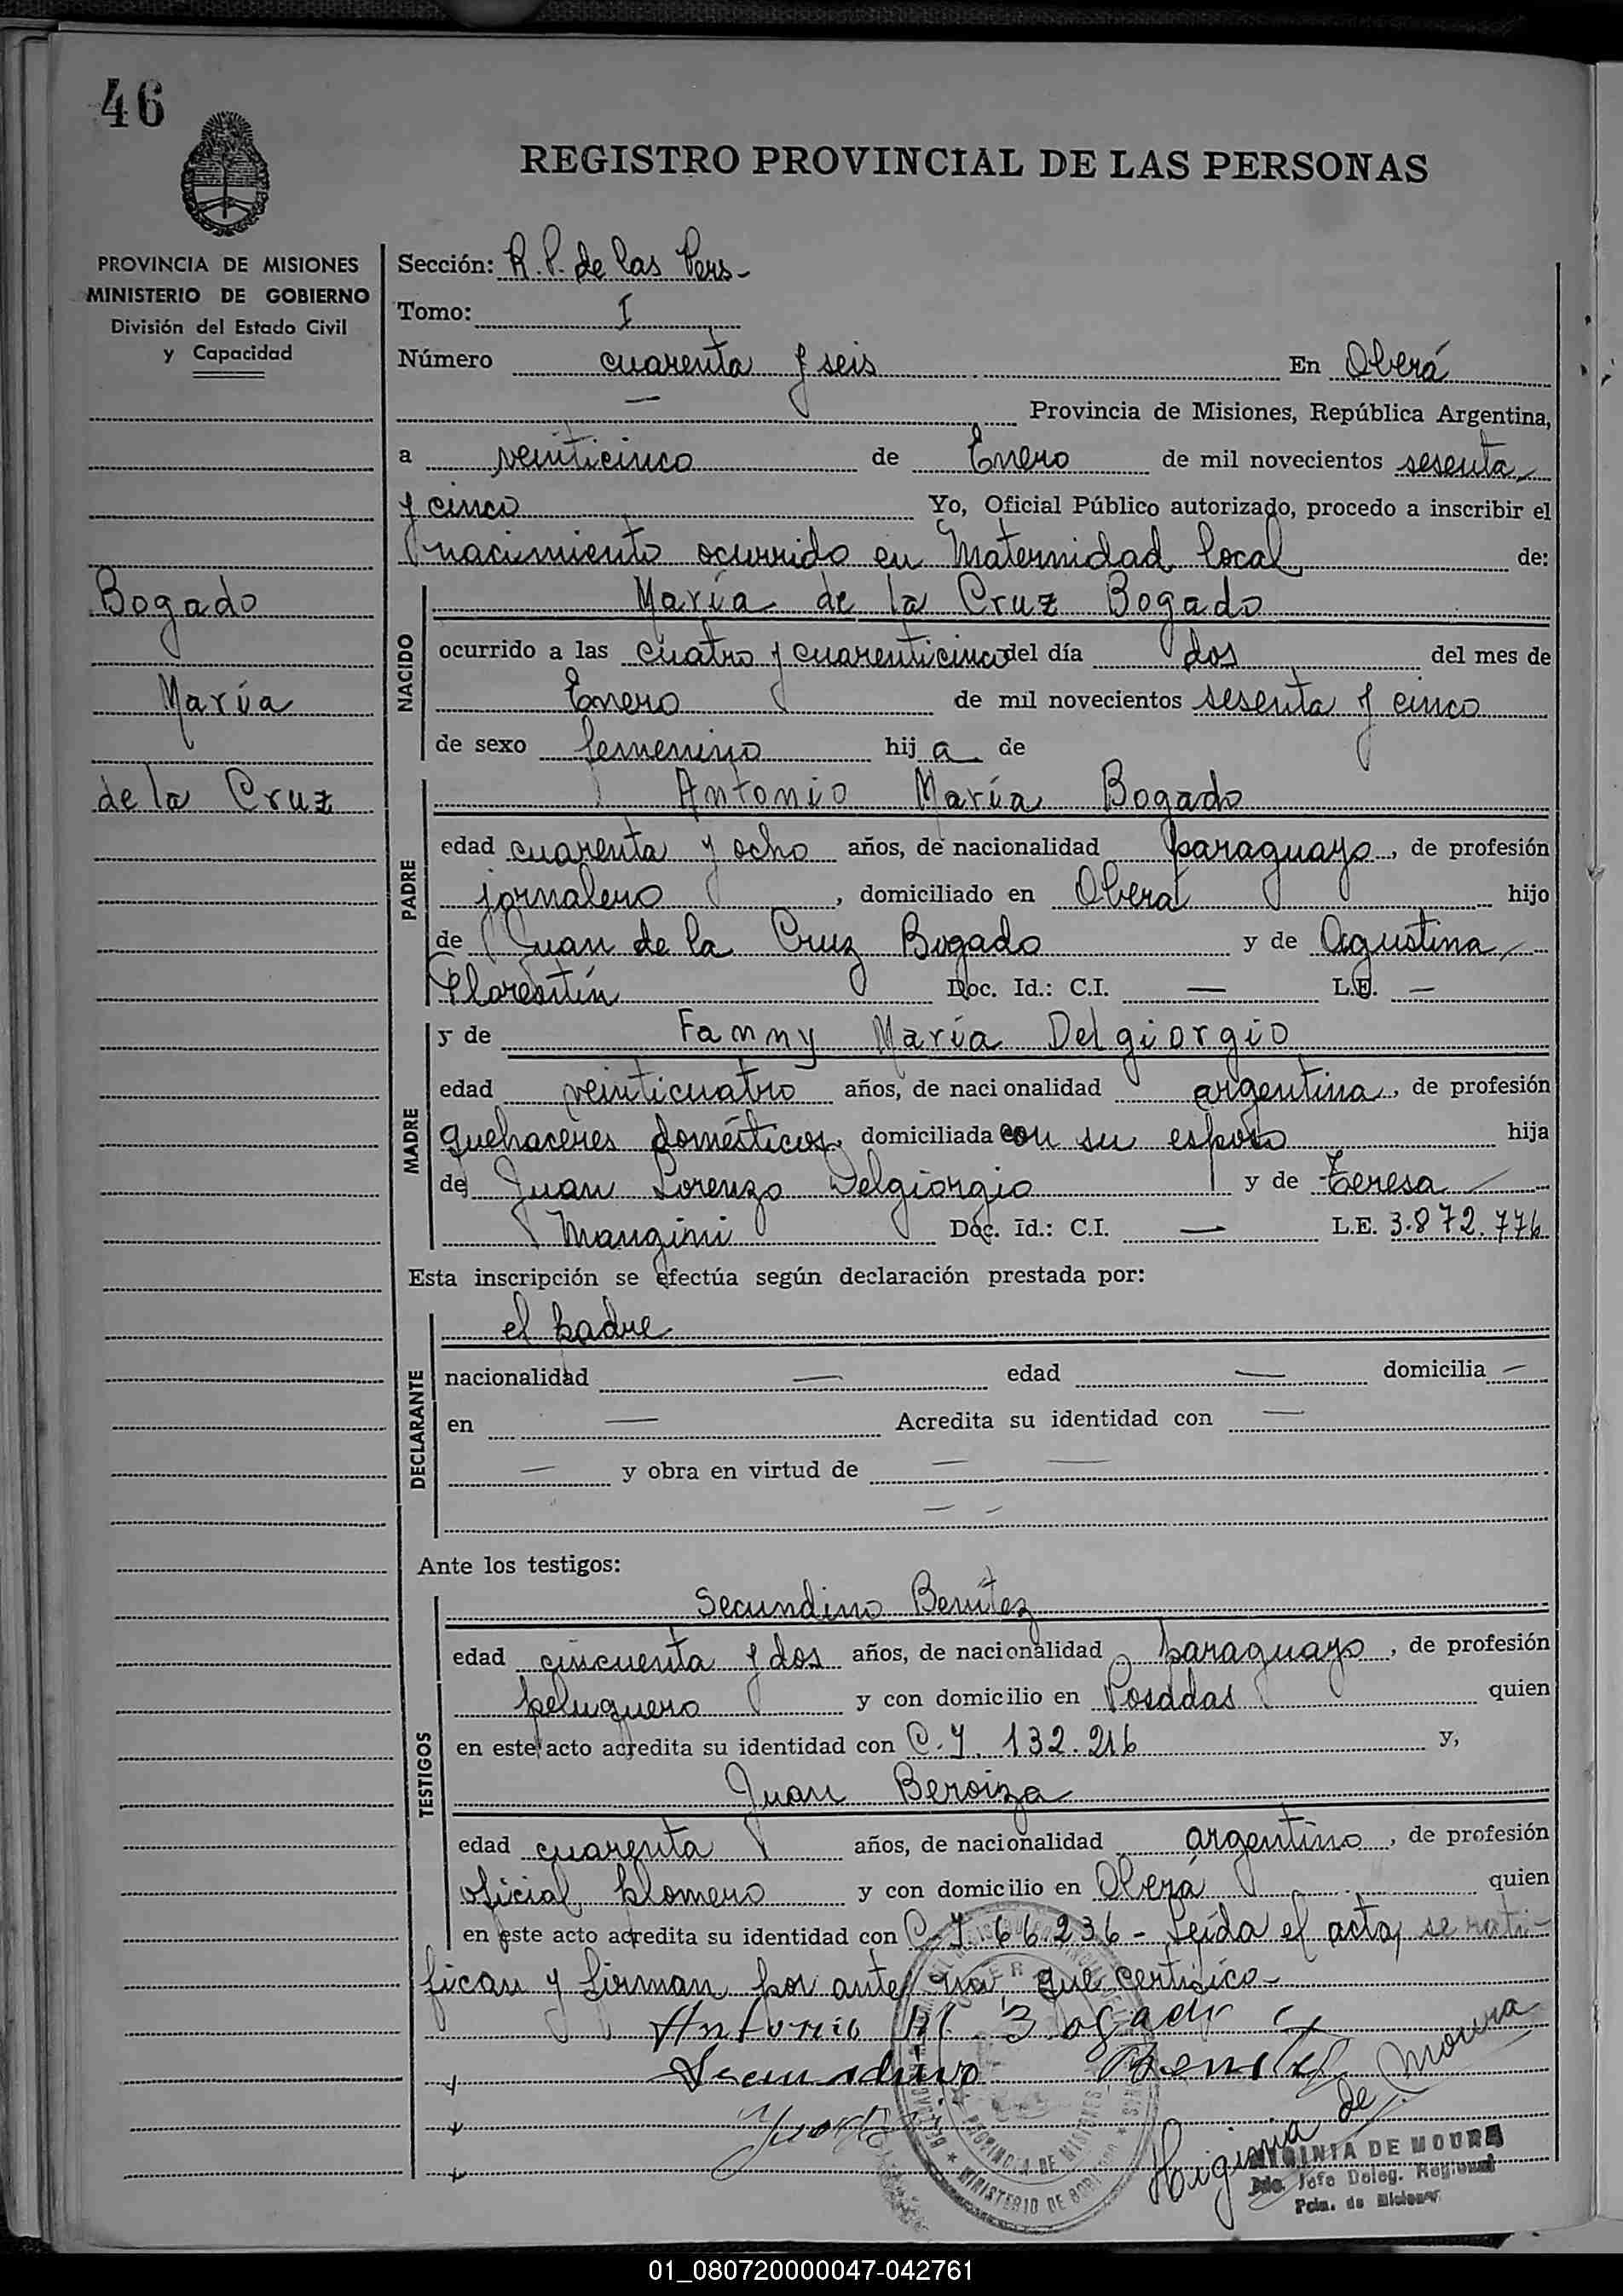 46
REGISTRO PROVINCIAL DE LAS PERSONAS
PROVINCIA DE MISIONES
MINISTERIO DE GOBIERNO
División del Estado Civil
y Capacidad
Bogado
María
de la Cruz
Sección: R. P. de las Pers-
Tomo: I
Número cuarenta y seis En Oberá
— Provincia de Misiones, República Argentina,
a veinticinco de Enero de mil novecientos sesenta
y cinco Yo, Oficial Público autorizado, procedo a inscribir el
nacimiento ocurrido en Maternidad local de:
NACIDO
María de la Cruz Bogado
ocurrido a las cuatro y cuarenticinco del día dos del mes de
Enero de mil novecientos sesenta y cinco
de sexo femenino hija de
PADRE
Antonio María Bogado
edad cuarenta y ocho años, de nacionalidad paraguayo, de profesión
jornalero, domiciliado en Oberá hijo
de Juan de la Cruz Bogado y de Agustina
Florentín Doc. Id.: C.I. — L.E. —
MADRE
y de Fanny María Delgiorgio
edad veinticuatro años, de nacionalidad argentina, de profesión
quehaceres domésticos, domiciliada con su esposo hija
de Juan Lorenzo Delgiorgio y de Teresa —
Mangini Doc. Id.: C.I. — L.E. 3.872.776
Esta inscripción se efectúa según declaración prestada por:
DECLARANTE
el padre
nacionalidad — edad — domicilia —
en — Acredita su identidad con —
— y obra en virtud de — —
— —
Ante los testigos:
TESTIGOS
Secundino Benítez
edad cincuenta y dos años, de nacionalidad paraguayo, de profesión
peluquero y con domicilio en Posadas quien
en este acto acredita su identidad con C.I. 132.216 y,
Juan Beroiza
edad cuarenta años, de nacionalidad argentino, de profesión
oficial plomero y con domicilio en Oberá quien
en este acto acredita su identidad con C.I. 66.236 - Leída el acta, se rati-
fican y firman por ante mí que certifico-
Antonio M. Bogado
Secundino Benítez
Higinia de Moura
HIGINIA DE MOURA
Jefe Deleg. Regional
Pcia. de Misiones
PROVINCIA DE MISIONES
MINISTERIO DE GOBIERNO
01_080720000047-042761